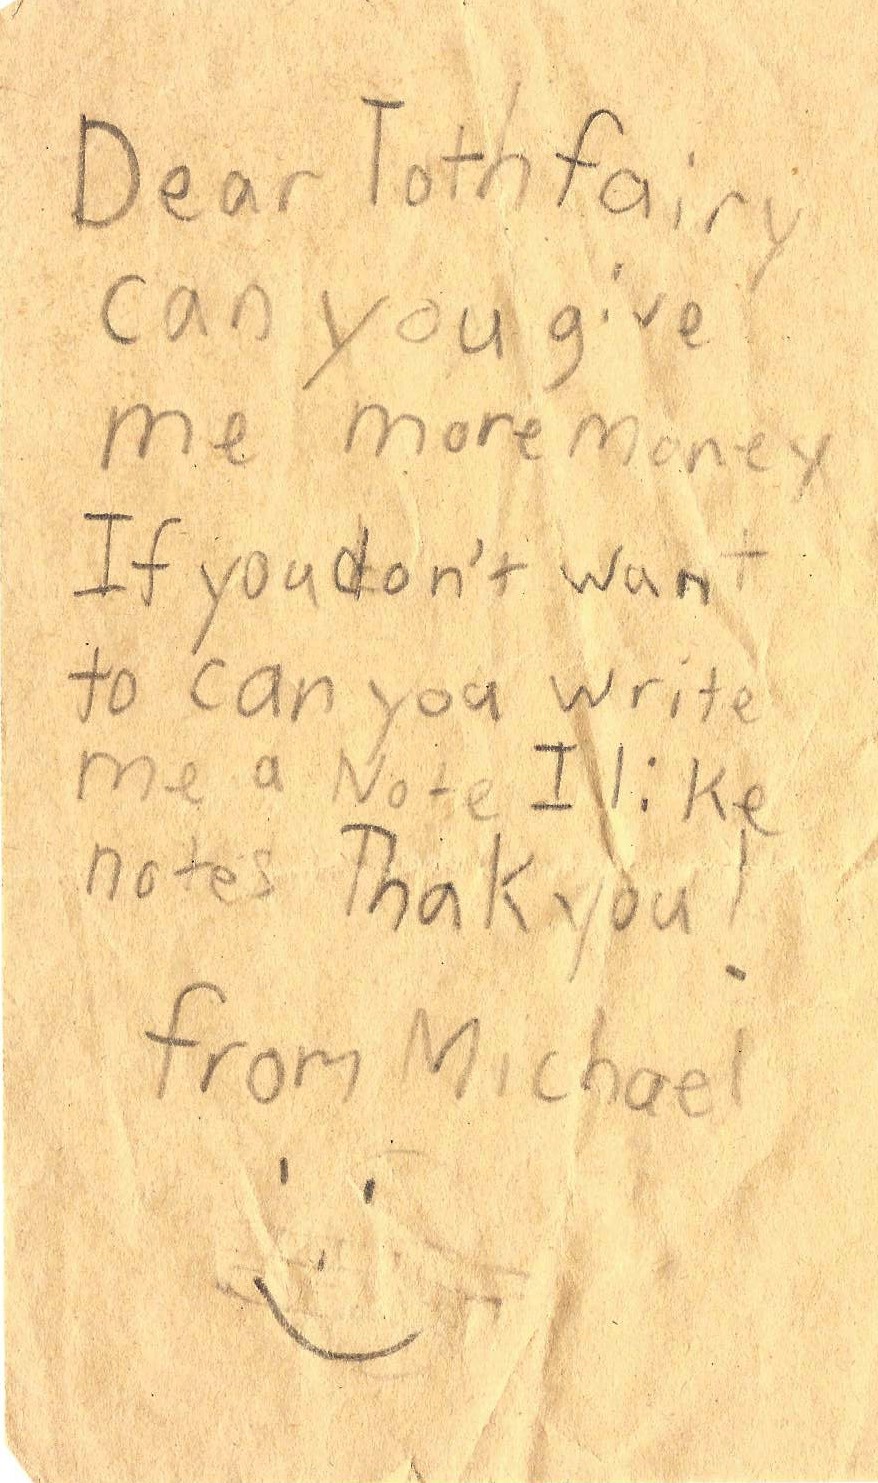 Dear Toth fairy
can you give
me more money
If you don't want
to can you write
me a Note I like
notes Thak you!
from Michael